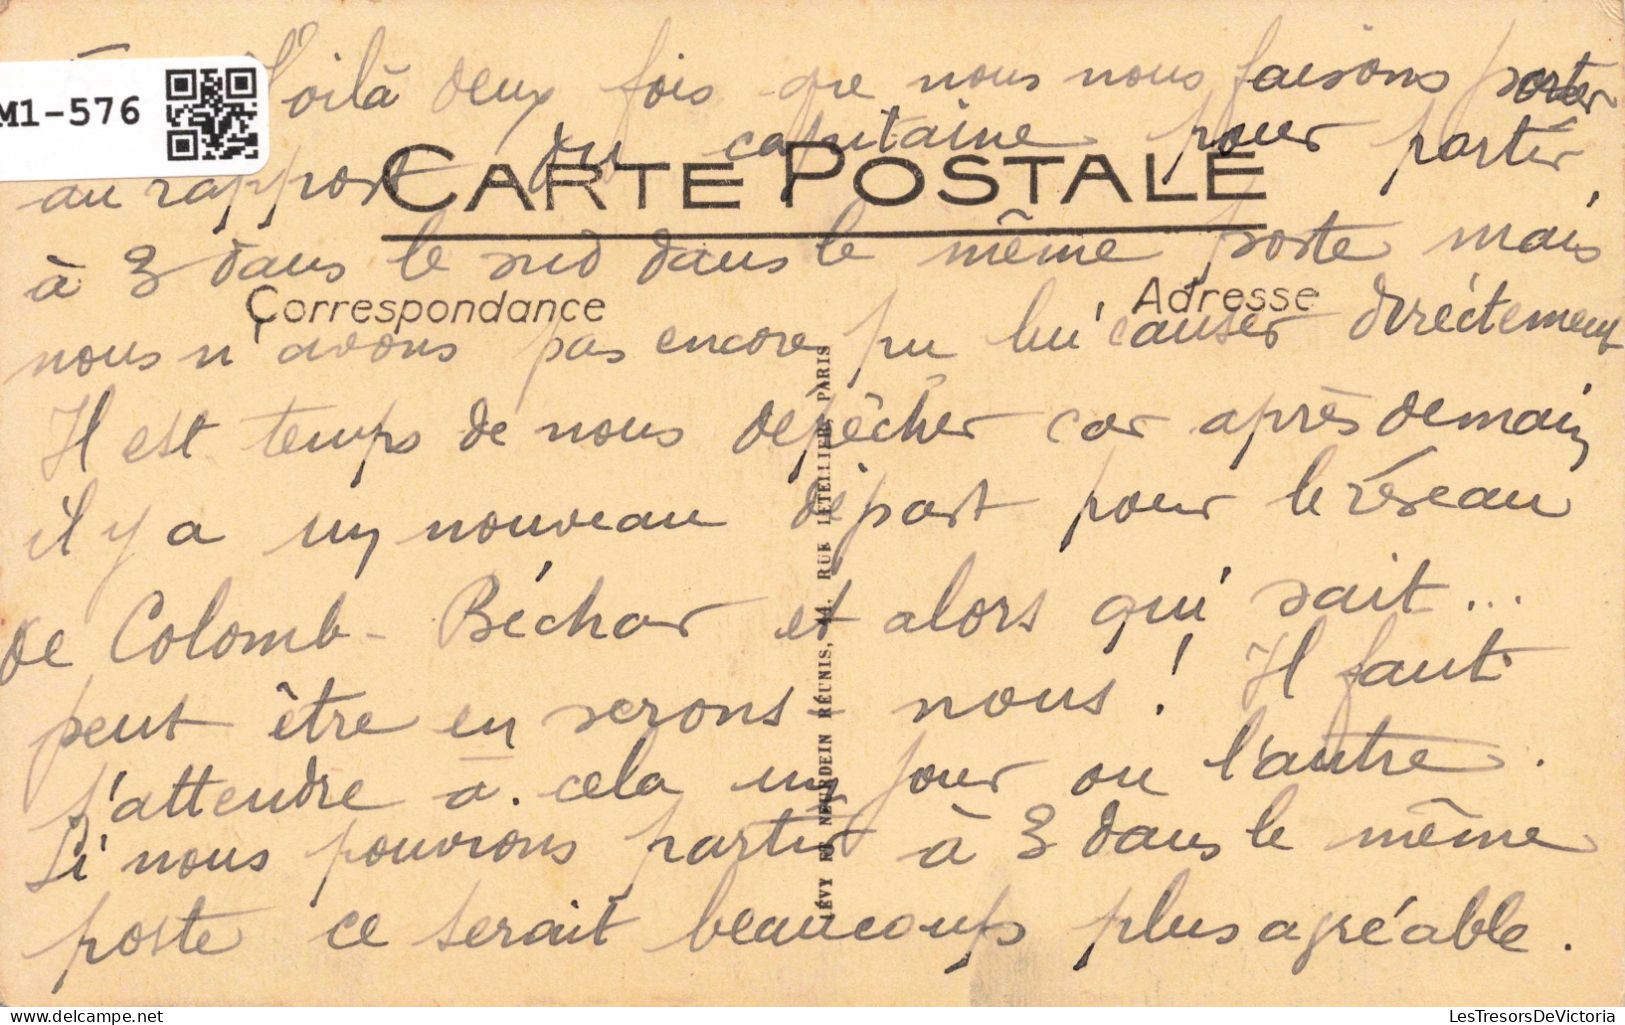 M1-576
Voilà deux fois que nous nous faisons porter
au rapport du capitaine pour partir
CARTE POSTALE
à 3 dans le sud dans le même poste mais
Correspondance
Adresse
nous n'avons pas encore pu lui causer directement
Il est temps de nous dépêcher car après demain
il y a un nouveau départ pour le réseau
de Colomb-Béchar et alors qui sait...
peut être en serons-nous! Il faut
s'attendre à cela un jour ou l'autre.
Si nous pouvions partir à 3 dans le même
poste ce serait beaucoup plus agréable.
LÉVY ET NEURDEIN RÉUNIS, 44, RUE LETELLIER, PARIS
delcampe.net
LesTresorsDeVictoria